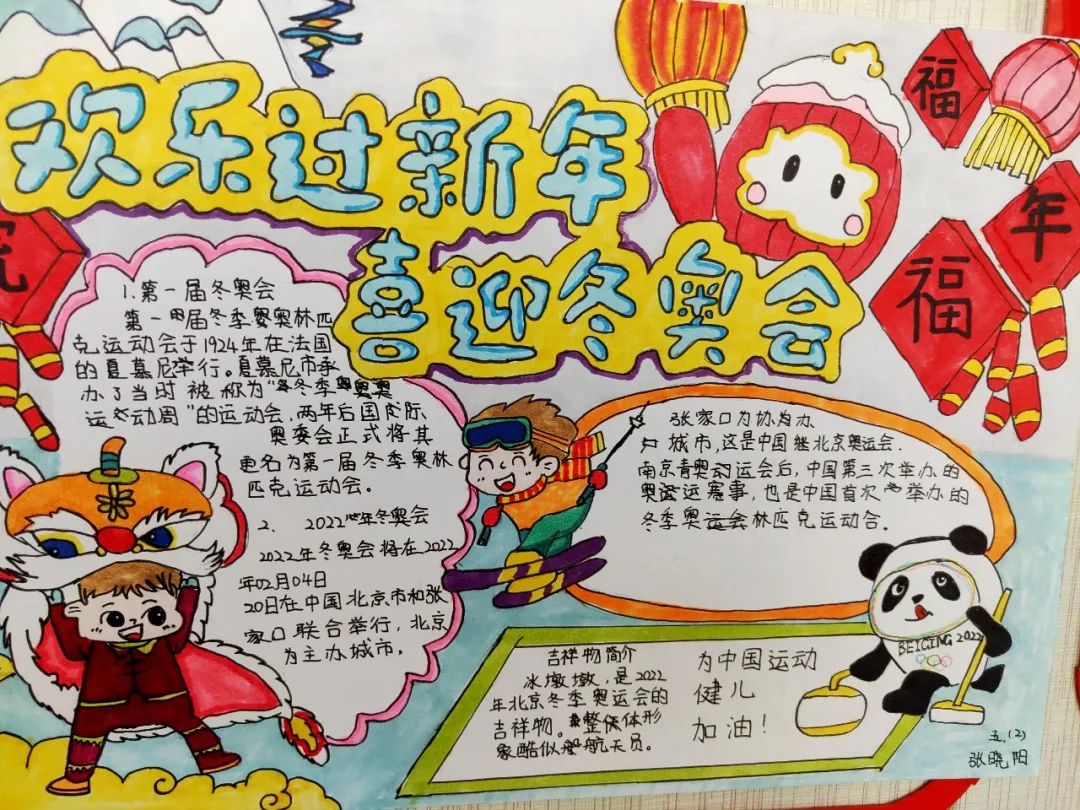 欢乐过新年
喜迎冬奥会
福
年
福
虎
1.第一届冬奥会
第一届冬季奥林匹
克运动会于1924年在法国
的夏慕尼举行。夏慕尼市承
办了当时被称为“冬季奥
运动周”的运动会,两年后国际
奥委会正式将其
更名为第一届冬季奥林
匹克运动会。
2、2022年冬奥会
2022年冬奥会将在2022
年02月04日
20日在中国北京市和张
家口联合举行,北京
为主办城市。
张家口为协办
城市,这是中国继北京奥运会.
南京青奥动运会后,中国第三次举办的
奥运赛事,也是中国首次举办的
冬季奥运会林匹克运动会。
吉祥物简介
冰墩墩,是2022
年北京冬季奥运会的
吉祥物。整体形
象酷似航天员。
为中国运动
健儿
加油!
BEIGING 2022
五.(2)
张晓阳